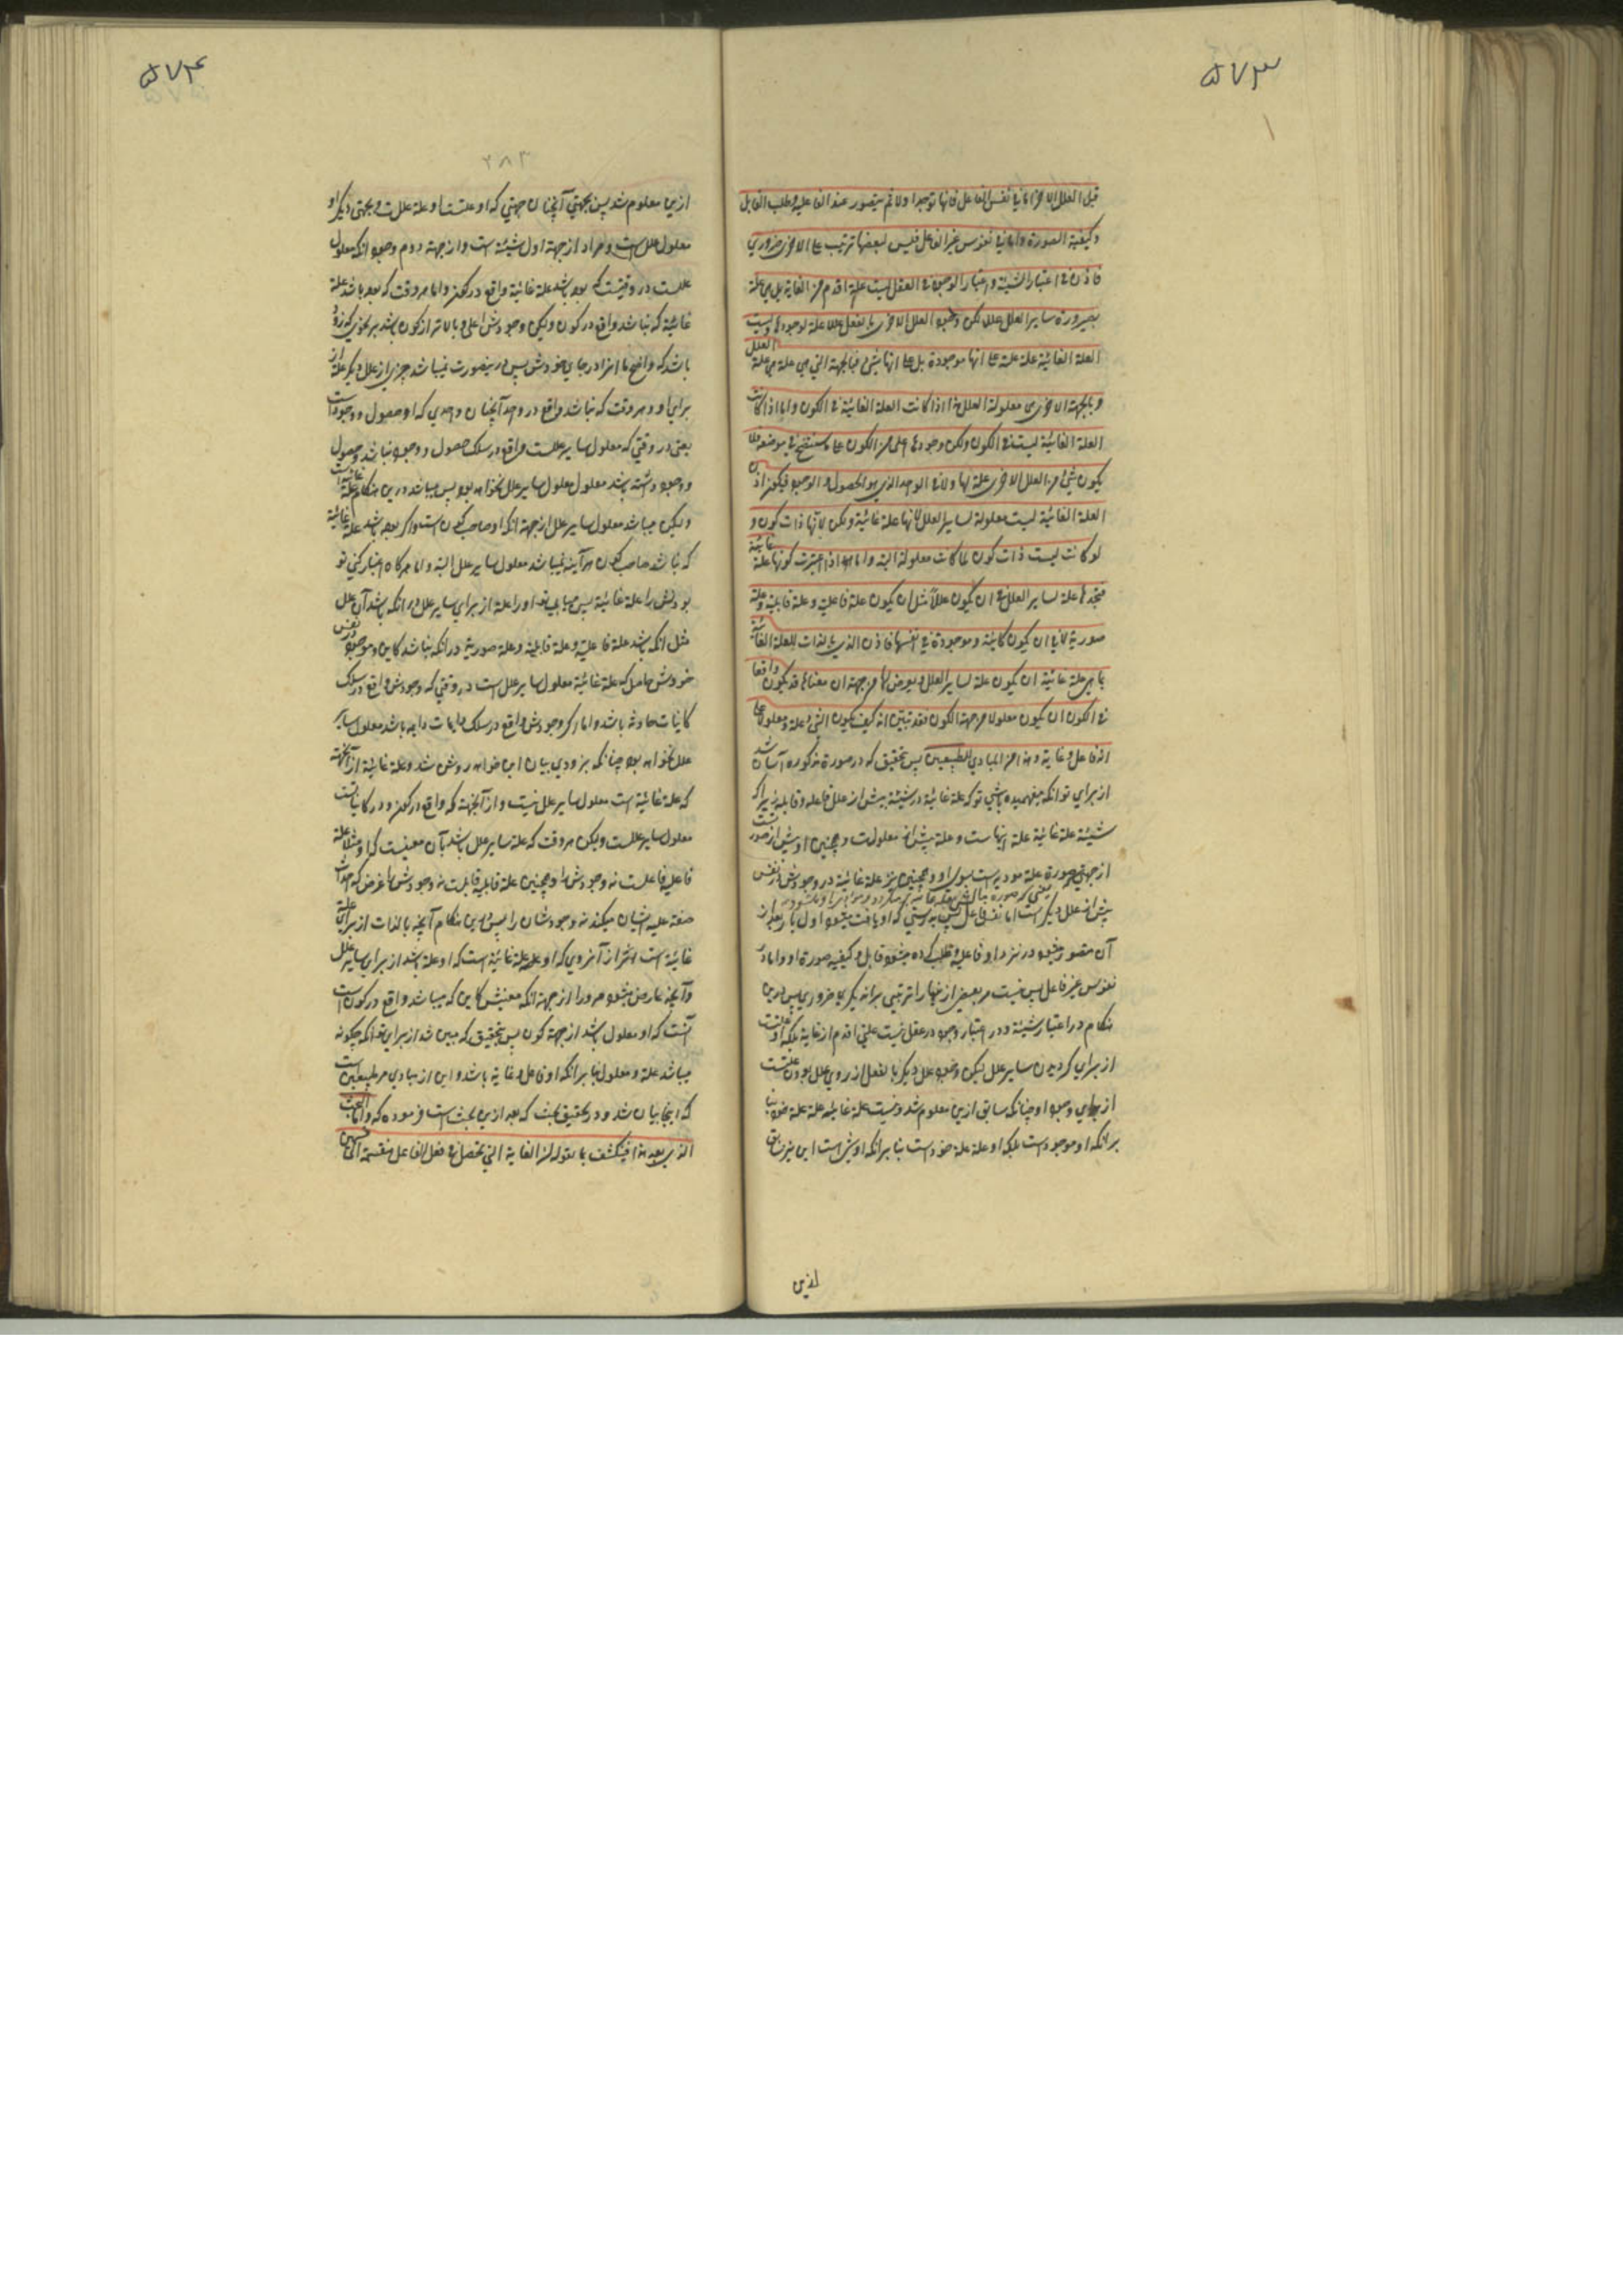 ۵۷۳
قبل العلل الاخر اما فی نفس الفاعل فانها توجد اولا ثم یتصور عنده الفاعلیه و طلب القابل
و کیفیة الصورة و اما فی نفوس غیر الفاعل فلیس لبعضها ترتیب علی الاخر ضروری
فاذن فی اعتبار الشیئیة و اعتبار الوجود فی العقل لیست علة اقدم من الغایة بل هی علة
لصیرورة سایر العلل عللا لکن وجود العلل الاخری بالفعل عللا علة لوجودها و لیست
العلة الغائیة علة علی انها موجودة بل علی انها شیء فبالجهة التی هی علة هی علة العلل
و بالجهة الاخری هی معلولة العلل هذا اذا کانت العلة الغائیة فی الکون و اما اذا کانت
العلة الغائیة لیست فی الکون ولکن وجودها اعلی من الکون علی ما سنتضح فی موضعه فلا
یکون شیء من العلل الاخری علة لها ولا فی الواحد الذی هو الحصول و الوجود فیکون اذن
العلة الغائیة لیست معلولة لسایر العلل لانها علة غائیة ولکن لانها ذات کون و
لو کانت لیست ذات کون لما کانت معلولة البتة و اما اذا اعتبرت کونها علة غائیة
فتجدها علة لسایر العلل فی ان یکون عللا مثل ان یکون علة فاعلیة و علة قابلیة و علة
صوریة لا فی ان یکون کائنة و موجودة فی انفسها فاذن الذی بالذات للعلة الغائیة
بما هی علة غائیة ان یکون علة لسایر العلل و یعرض لها من جهة ان معناها قد یکون واقعا
فی الکون ان یکون معلولا من جهة الکون فقد تبین انه کیف یکون الشیء علة و معلولا علی
انه فاعل و غایة و هذا من المبادی للطبیعیین پس بتحقیق که در صورة مذکوره آسان شد
از برای تو آنکه بفهمیده باشی تو که علة غائیة در شیئیة پیش از علل فاعله و قابله زیرا که
شیئیة علة غائیة علة اینهاست و علة پیش از معلولست و همچنین او پیش از صورتست
از جهتی صورة علة صوریه است بسوی او و همچنین نیز علة غائیة در وجودش در نفس
پیش از علل دیگر است اما نفس فاعل پس بدرستی که او یافت میشود اول بار بعد از
آن متصور میشود در نزد او فاعلیه و طلب کرده میشود قابل و کیفیه صورة او و اما در
نفوس غیر فاعل پس نیست مر بعضی از اینها را ترتیبی بر اندیگری ضروری پس درین
هنگام در اعتبار شیئیة و در اعتبار وجود در عقل نیست علتی اقدم از غایة بلکه او علتست
از برای گردیدن سایر علل لیکن وجود علل دیگر بالفعل از روی علل بودن علتست
از برای وجود او چنانکه سابق ازین معلوم شد و نیست علة غائیة علة علة خود بنا
بر آنکه او موجود است بلکه او علة علة خود است بنا بر آنکه او شیء است این نیز سابق
ازین
۵۷۴
۲۸۳
ازین معلوم شد پس بجهتی آنچنان جهتی که او علتست او علة علل است و بجهتی دیگر او
معلول علل است و مراد از جهة اول شیئیة است و از جهة دوم وجود آنکه معلول
عللست در وقتیست که بوده باشد علة غائیة واقع در کون و اما هر وقت که بوده باشد علة
غائیة که نباشد واقع در کون ولیکن وجودش اعلی و بالاتر از کون باشد بر نحوی که زود
باشد که واضح ما اینرا در جای خودش پس درینصورت نمیباشد چیزی از علل دیگر علة از
برای او و هر وقت که نباشد واقع در واحد آنچنان واحدی که او حصول و وجود است
یعنی در وقتی که معلول سایر عللست واقع در سلک حصول و وجود نباشد و حصول
و وجود داشته باشد معلول معلول سایر علل نخواهد بود پس میباشد درین هنگام علة غائیة
ولیکن میباشد معلول سایر علل از جهة آنکه او صاحب کون است و اگر بوده باشد علة غائیة
که نباشد صاحب کون هر آینه نمیباشد معلول سایر علل البتة و اما هرگاه اعتبار کنی تو
بودنش را علة غائیة پس میابی تو او را علة از برای سایر علل در آنکه باشد آن علل
مثل آنکه باشد علة فاعلیه و علة قابلیه و علة صوریة در آنکه نباشد کاین و موجود در نفس
خودش حاصل که علة غائیة معلول سایر علل است در وقتی که وجودش واقع در سلک
کاینات حادثه باشد و اما اگر وجودش واقع در سلک دایمات دایمه باشد معلول سایر
علل نخواهد بود چنانکه بزودی بیان این خواهد روشن شد و علة غائیة از آنجهة
که علة غائیة است معلول سایر علل نیست و از آنجهة که واقع در کون و در کاینات است
معلول سایر عللست ولیکن هر وقت که علة سایر علل باشد بآن معنیست که او مثلا علة
فاعلیه فاعلست نه وجودش را و همچنین علة قابلیه قابلست نه وجودش را غرض که احداث
صفة علیه ایشان میکند نه وجودشان را پس درین هنگام آنچه بالذات از برای علة
غائیة است اثر از آنروی که او علة غائیة است که او علة باشد از برای سایر علل
و آنچه عارض میشود مر او را از جهة آنکه معنیش کاین که میباشد واقع در کون است
آنست که او معلول باشد از جهة کون پس بتحقیق که مبین شد از برای تو آنکه چگونه
میباشد علة و معلول بنا بر آنکه او فاعل و غایة باشد و این از مبادی مر طبیعیین است
که اینجا بیان شد و در تحقیق بحث که بعد ازین بحث است فرموده که و اما البحث
الذی بعد هذا فینکشف بما نقوله ان الغایة التی تحصل فی فعل الفاعل منقسمة الی قسمین